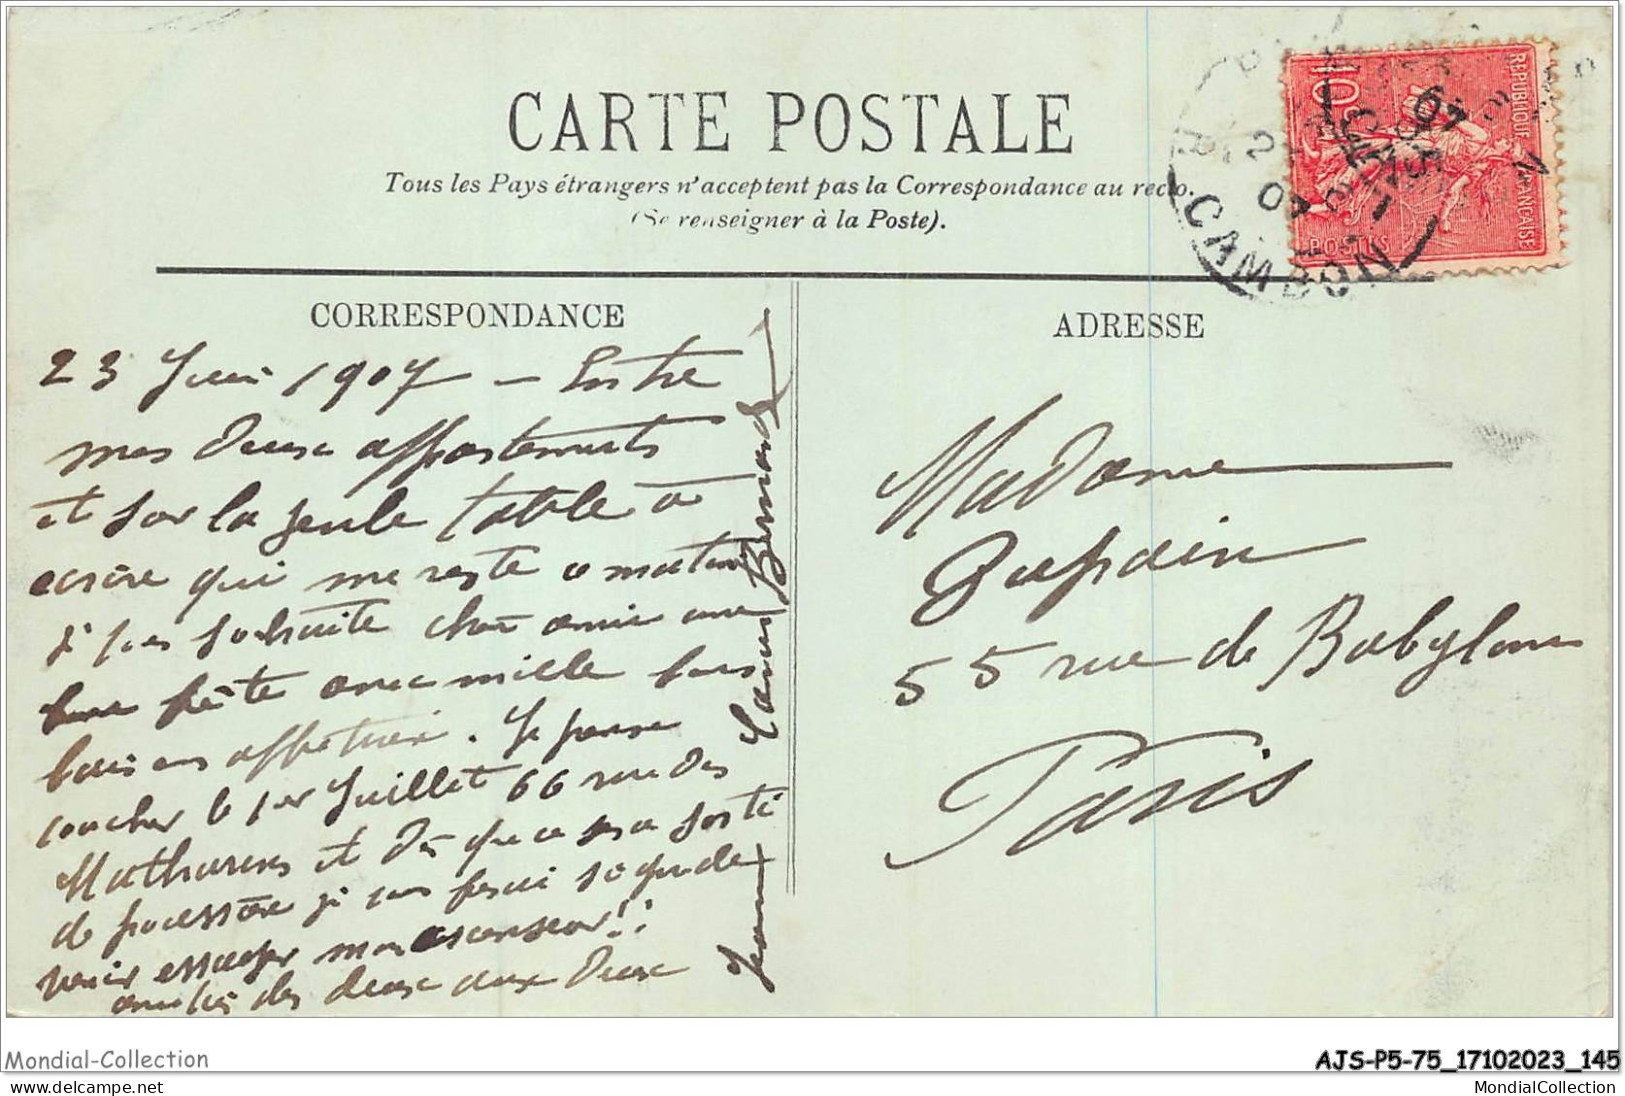 CARTE POSTALE
Tous les Pays étrangers n'acceptent pas la Correspondance au recto.
(Se renseigner à la Poste).
REPUBLIQUE FRANÇAISE
10
POSTES
CAMBON
CORRESPONDANCE
23 Juin 1907 — Entre
mes deux appartements
et sur la seule table à
écrire qui me reste ce matin
je vous souhaite chère amie une
bonne fête avec mille bons
baisers affectueux. Je pense
coucher le 1er Juillet 66 rue des
Mathurins et dès que ce sera sorti
de poussière je vous ferai signe de
venir essayer mon ascenseur!!
amitiés des deux aux deux
Jeanne Louis Bernard
ADRESSE
Madame
55 rue de Babylone
Paris
Mondial-Collection
delcampe.net
AJS-P5-75_17102023_145
MondialCollection